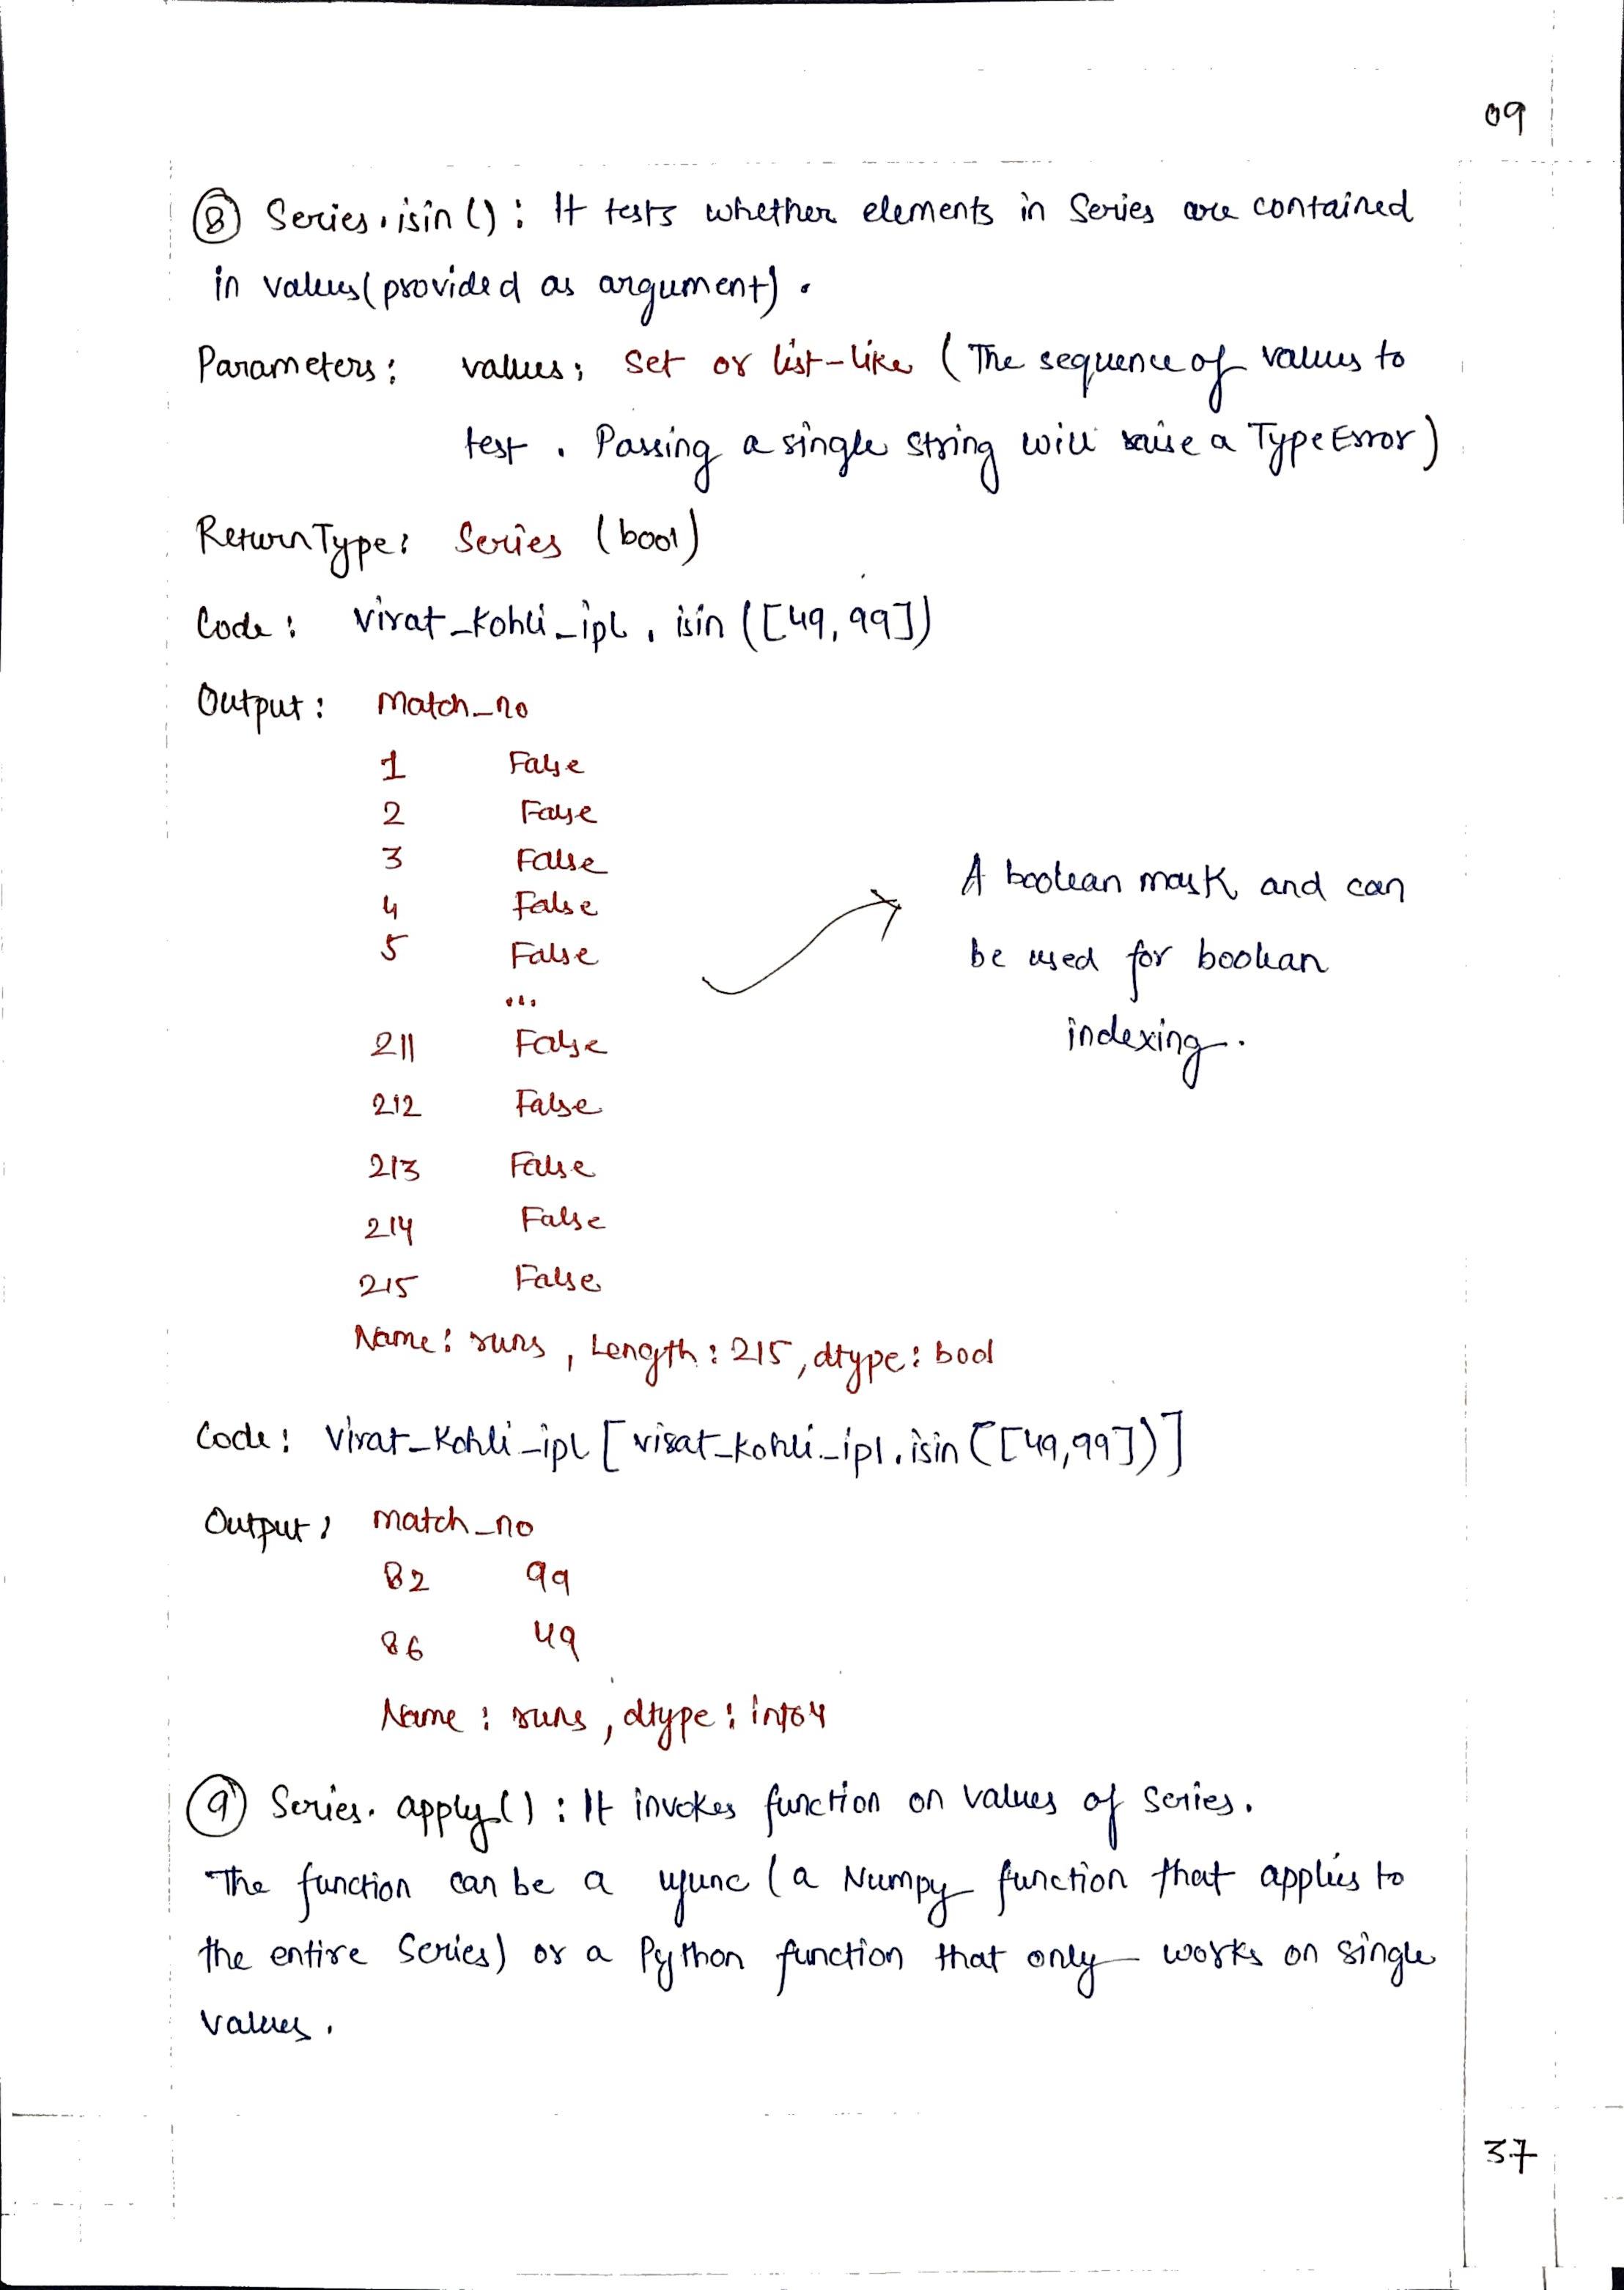 09
⑧ Series.isin() : It tests whether elements in Series are contained
in values (provided as argument).
Parameters: values: Set or list-like (The sequence of values to
test. Passing a single string will raise a TypeError)
Return Type: Series (bool)
Code: virat_kohli_ipl.isin([49,99])
Output: match_no
1 False
2 False
3 False
4 False
5 False
...
211 False
212 False
213 False
214 False
215 False
Name: runs, Length: 215, dtype: bool
A boolean mask and can
be used for boolean
indexing.
Code: virat_kohli_ipl[virat_kohli_ipl.isin([49,99])]
Output: match_no
82 99
86 49
Name: runs, dtype: int64
⑨ Series.apply() : It invokes function on values of series.
The function can be a ufunc (a Numpy function that applies to
the entire Series) or a Python function that only works on single
values.
37